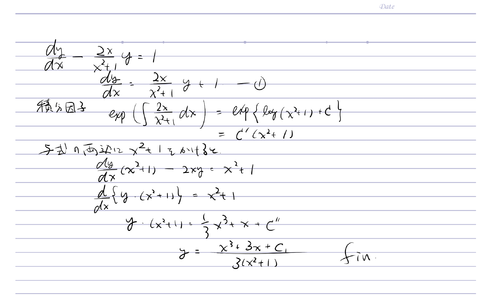 Date
dy/dx - 2x/(x²+1) y = 1
dy/dx = 2x/(x²+1) y + 1 — ①
積分因子 exp(∫ 2x/(x²+1) dx) = exp{log(x²+1) + C}
= C''(x²+1)
与式の両辺に x²+1 をかけると
dy/dx (x²+1) - 2xy = x²+1
d/dx {y・(x²+1)} = x²+1
y・(x²+1) = 1/3 x³ + x + C''
y = (x³ + 3x + C₁)/(3(x²+1)) fin.